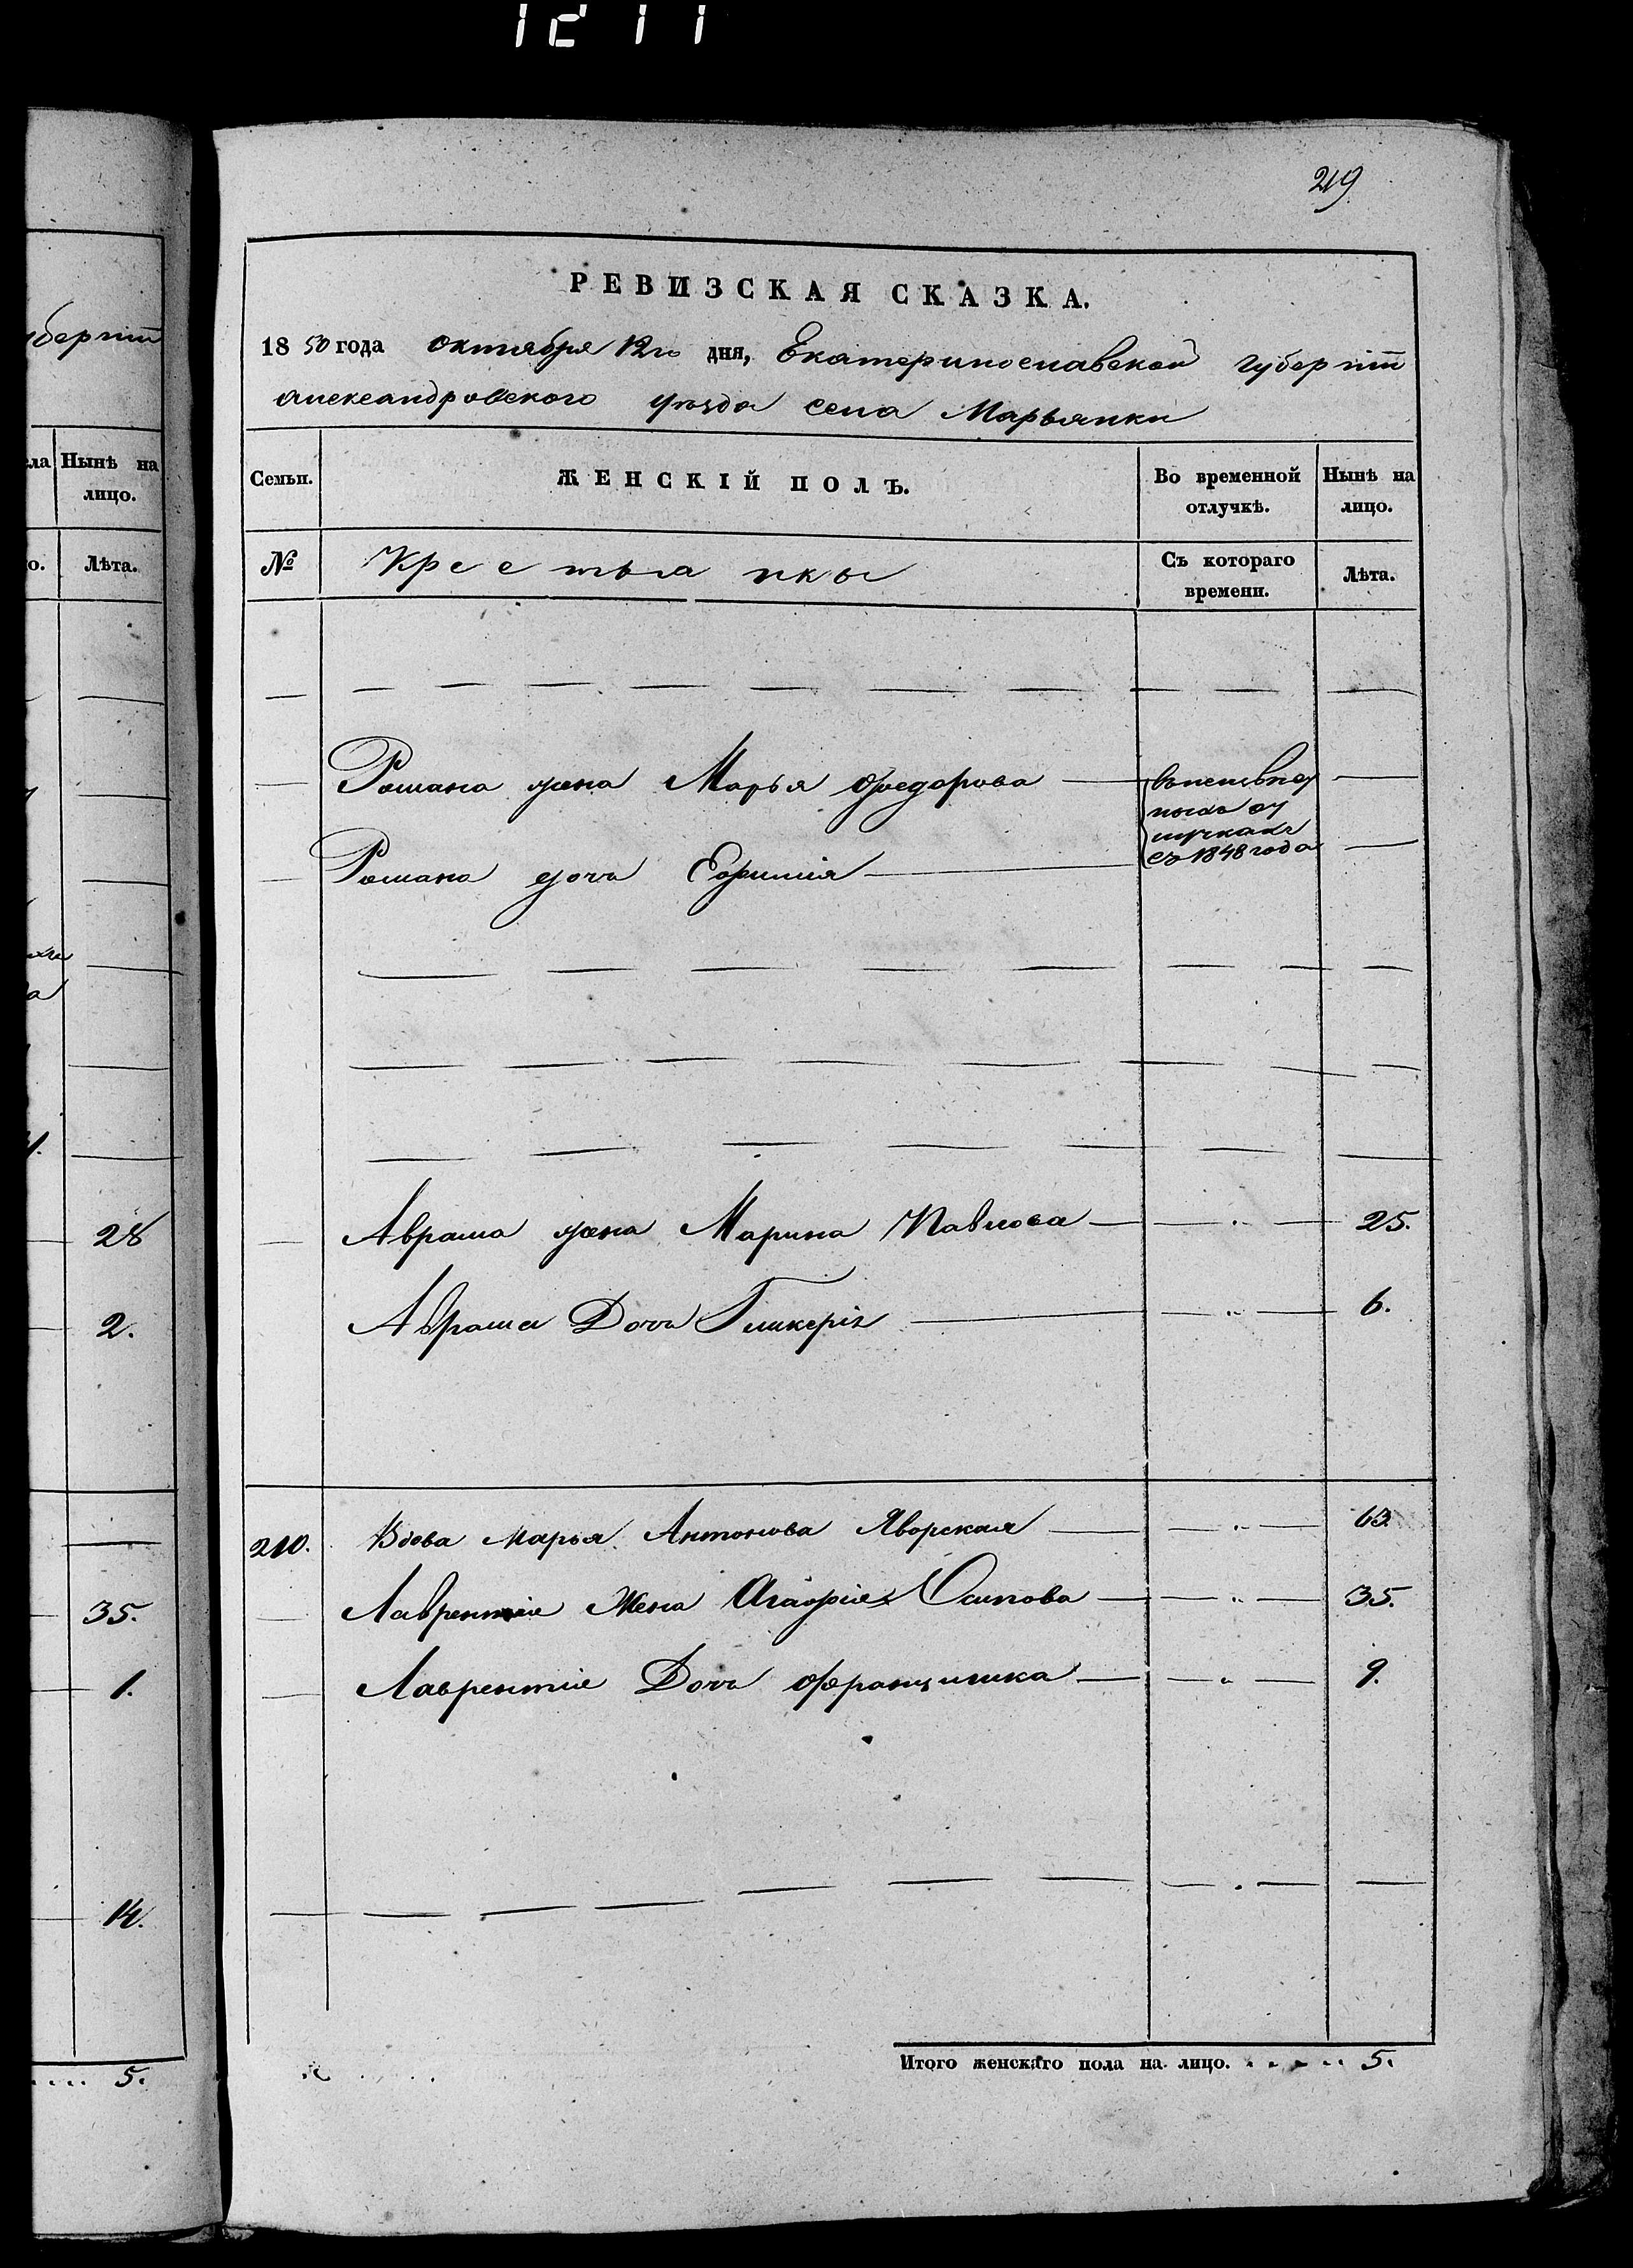 1211
219
РЕВИЗСКАЯ СКАЗКА.
1850 года октября 12го дня, Екатеринославской губерніи
Александровского уѣзда села Марьянки
Семьи. ЖЕНСКІЙ ПОЛЪ. Во временной отлучкѣ. Нынѣ на лицо.
№ Крестьянки Съ котораго времени. Лѣта.
Романа жена Марья Федорова
Романа дочь Ефимія
съ 1848 года
Аврама жена Марина Павлова — " — 25.
Аврама Дочь Гликерія — " — 6.
210. Вдова Марья Антонова Яворская — " — 63.
Лаврентія Жена Агафія Осипова — " — 35.
Лаврентія Дочь Францишка — " — 9.
Итого женскаго пола на лицо. . . . . . 5.
берніи
ла Нынѣ на
лицо.
о. Лѣта.
28
2.
35.
1.
14.
5.